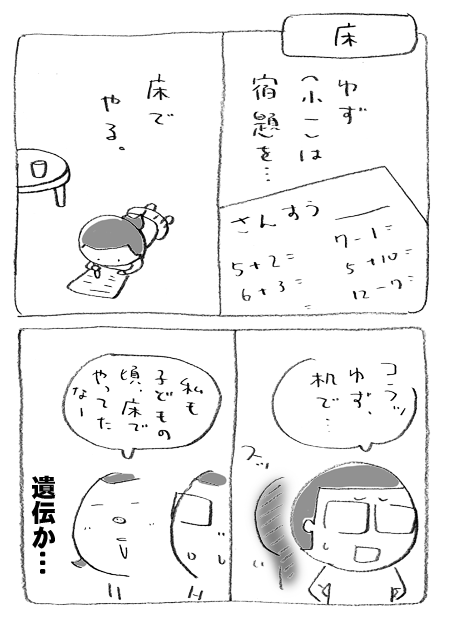 床
ゆず
(小一)は
宿題を…
さんすう
7-1=
5+2=
5+10=
6+3=
12-7=
=
床で
やる。
コラッ
ゆず、
机で…
スッ
私も
子どもの
頃、床で
やってた
なー
遺伝か…